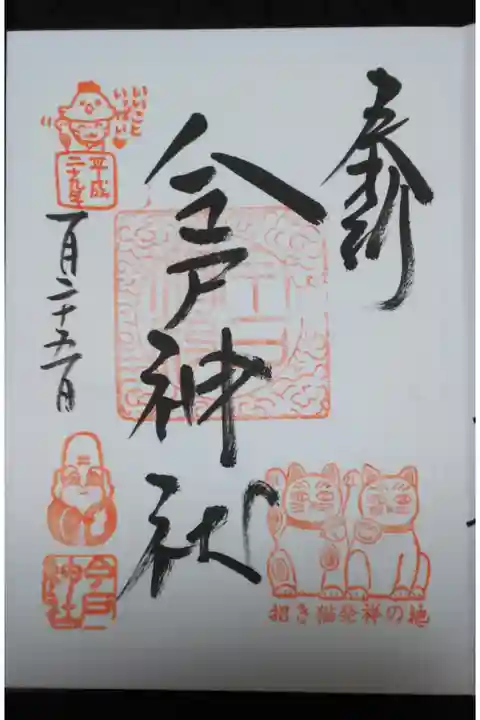 奉拝
今戸神社
いいこと
いっぱい
平成
二十九年
一月二十五日
今戸
神社
招き猫発祥の地